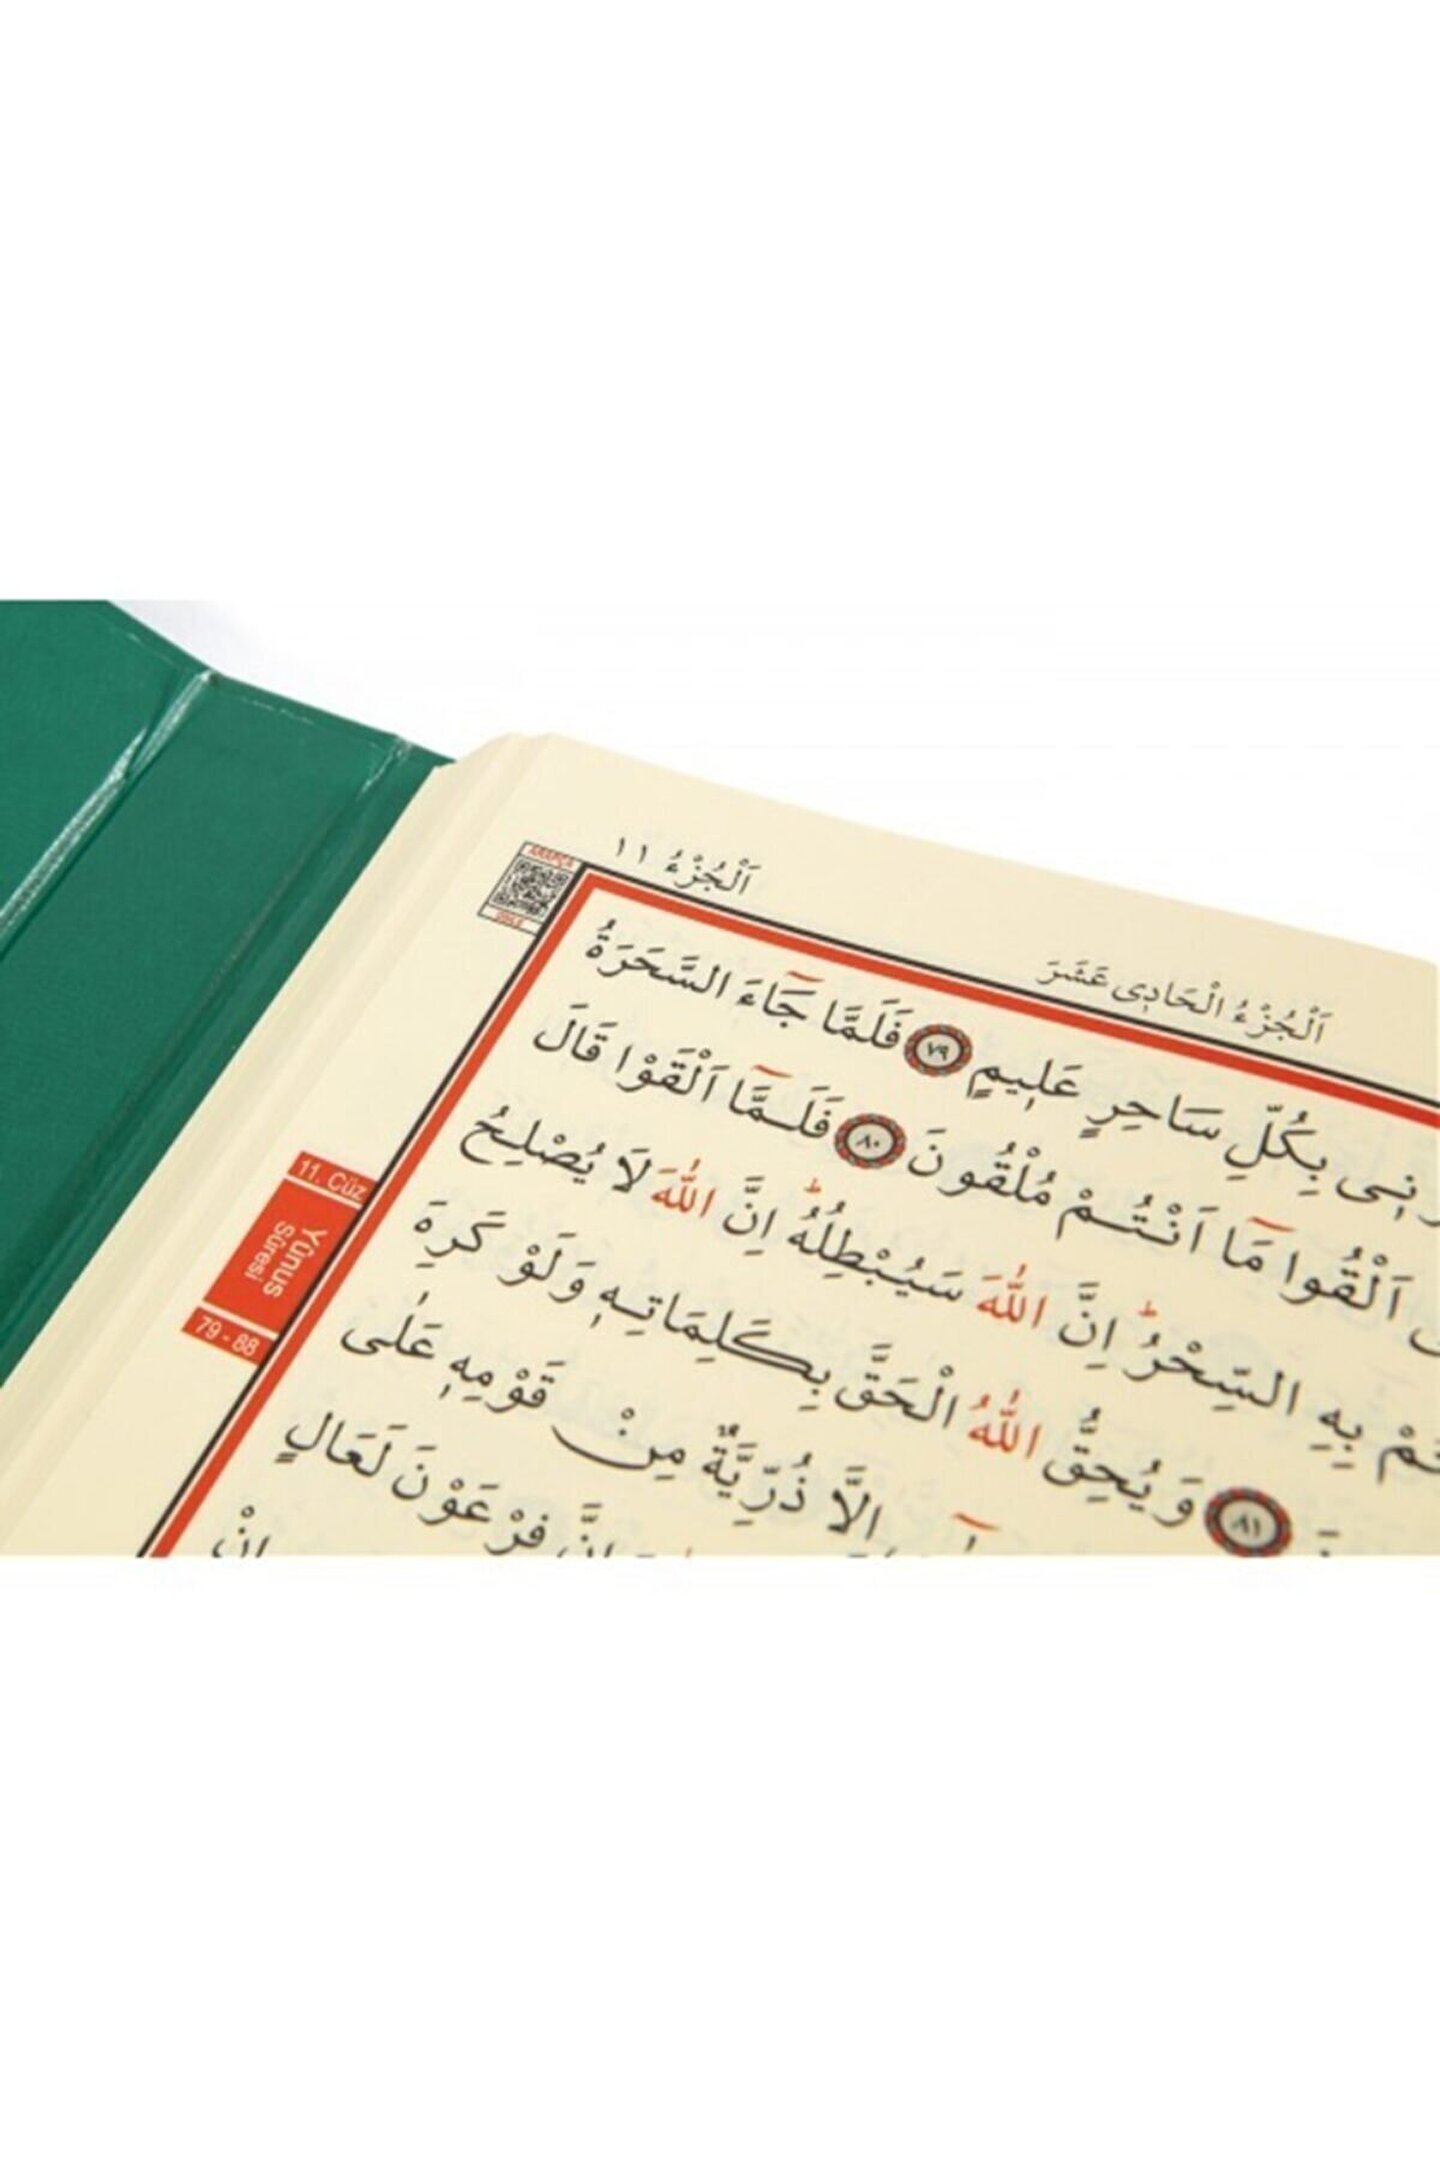 اَلْجُزْءُ ١١
اَلْجُزْءُ الْحَادِى عَشَرَ
ARAPÇA
بِكُلِّ سَاحِرٍ عَلِيمٍ ٧٩ فَلَمَّا جَٓاءَ السَّحَرَةُ
اَلْقُوا مَٓا اَنْتُمْ مُلْقُونَ ٨٠ فَلَمَّٓا اَلْقَوْا قَالَ
بِهِ السِّحْرُ اِنَّ اللّٰهَ سَيُبْطِلُهُ اِنَّ اللّٰهَ لَا يُصْلِحُ
٨١ وَيُحِقُّ اللّٰهُ الْحَقَّ بِكَلِمَاتِهِ وَلَوْ كَرِهَ
اِلَّا ذُرِّيَّةٌ مِنْ قَوْمِهِ عَلٰى
فِرْعَوْنَ لَعَالٍ
11. Cüz
Yûnus
Sûresi
79 - 88